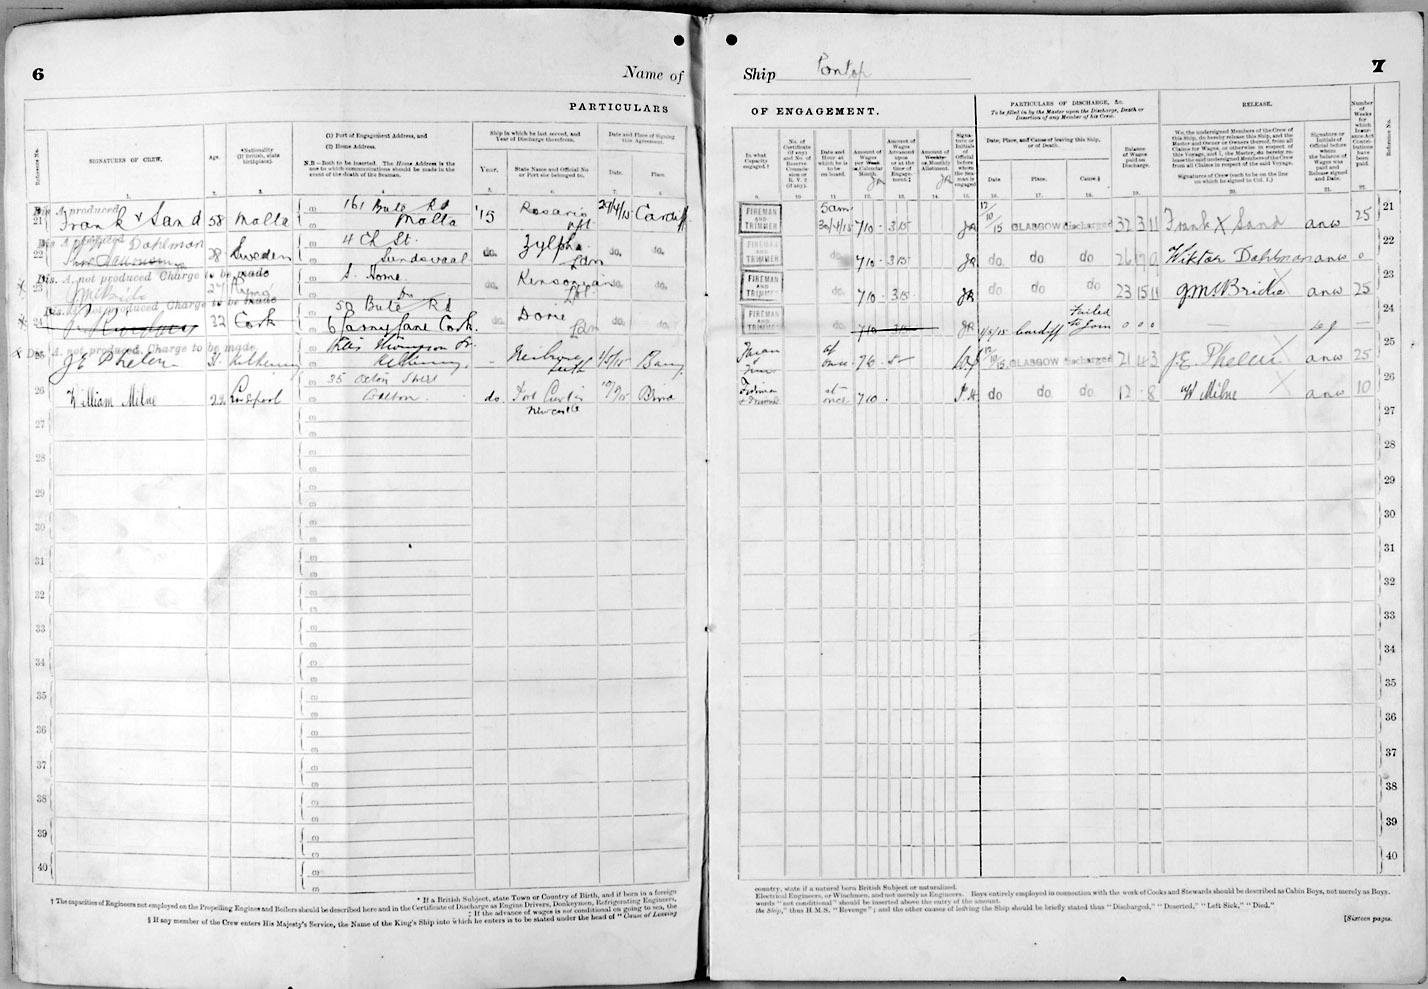 6
Name of
PARTICULARS
Reference No.
SIGNATURES OF CREW.
Age.
*Nationality
(If British, state
birthplace).
(1) Port of Engagement Address, and
(2) Home Address.
N.B.—Both to be inserted. The Home Address is the
one to which communications should be made in the
event of the death of the Seaman.
Ship in which he last served, and
Year of Discharge therefrom.
Year.
State Name and Official No
or Port she belonged to.
Date and Place of Signing
this Agreement.
Date.
Place.
1.
2.
3.
4
5.
6.
7.
8
Dis A produced
21 Frank x Sand 58 Malta
161 Bute Rd
Malta
'15 Rosario
29/4/15 Cardiff
Dis A produced
22 Dahlman
28 Sweden
4 Ch St.
Sundsvaal
do. Zylpha
do. do.
Dis. A. not produced Charge to be made
23 J McBride 27
S. Home
do Kensorian
do. do.
Dis. A. not produced Charge to be made
24 32 Cork
50 Bute Rd
6 Lane Cork.
do. Dorie
do. do.
x Dis A. not produced Charge to be made
25 J E Phelan Kilkenny
Thompson
Kilkenny
26 William Milne 22 Liverpool
35 Street
do Port Curtis
Newcastle
27
28
29
30
31
32
33
34
35
36
37
38
39
40
* If a British Subject, state Town or Country of Birth, and if born in a foreign
† The capacities of Engineers not employed on the Propelling Engines and Boilers should be described here and in the Certificate of Discharge as Engine Drivers, Donkeymen, Refrigerating Engineers,
‡ If the advance of wages is not conditional on going to sea, the
§ If any member of the Crew enters His Majesty's Service, the Name of the King's Ship into which he enters is to be stated under the head of "Cause of Leaving
Ship Pontop
7
OF ENGAGEMENT.
PARTICULARS OF DISCHARGE, &c.
To be filled in by the Master upon the Discharge, Death or
Desertion of any Member of his Crew.
RELEASE.
Number
of
Weeks
for
which
Insur-
ance Act
Contri-
butions
have
been
paid.
Reference No.
In what
Capacity
engaged.†
No. of
Certificate
(if any)
and No. of
Reserve
Commis-
sion or
R. V. 2
(if any).
Date and
Hour at
which he is
to be
on board.
Amount of
Wages
per Week
or Calendar
Month.
Amount of
Wages
Advanced
upon
or at the
time of
Engage-
ment.‡
Amount of
Weekly
or Monthly
Allotment.
Signa-
ture or
Initials of
Official
before
whom the
Sea-
man is
engaged
Date, Place, and Cause of leaving this Ship,
or of Death.
Date.
Place.
Cause.§
Balance
of
Wages
paid on
Discharge.
We, the undersigned Members of the Crew of
this Ship, do hereby release this Ship, and the
Master and Owner or Owners thereof, from all
Claims for Wages, or otherwise in respect of
this Voyage, and I, the Master, do hereby re-
lease the said undersigned Members of the Crew
from all Claims in respect of the said Voyage.
Signatures of Crew (each to be on the line
on which he signed in Col. 1.)
Signature or
Initials of
Official
before
whom
the balance
of Wages
was paid and
Release signed
and Date.
9.
10.
11.
12.
13.
14.
15.
16.
17.
18.
19.
20.
21.
22.
FIREMAN AND TRIMMER 5am 30/4/15 7 10 - 3 15 JR 12/10/15 GLASGOW discharged 32 3 11 Frank X Sand anw 25 21
FIREMAN AND TRIMMER do. 7 10 - 3 15 JR do do do Wiktor Dahlman anw 0 22
FIREMAN AND TRIMMER do. 7 10 - 3 15 JR do do do 23 15 11 J McBride anw 25 23
FIREMAN AND TRIMMER do. 7 10 JR 1/5/15 Cardiff Failed to join 0 0 0 — — 24
at once GLASGOW discharged 21 4 3 J.E. Phelan anw 25 25
at once 7 10 do do do 12 - 8 W Milne anw 10 26
27
28
29
30
31
32
33
34
35
36
37
38
39
40
country, state if a natural born British Subject or naturalized.
Electrical Engineers, or Winchmen, and not merely as Engineers. Boys entirely employed in connection with the work of Cooks and Stewards should be described as Cabin Boys, not merely as Boys.
words "not conditional" should be inserted above the entry of the amount.
the Ship," thus H.M.S. "Revenge"; and the other causes of leaving the Ship should be briefly stated thus "Discharged," "Deserted," "Left Sick," "Died."
[Sixteen pages.